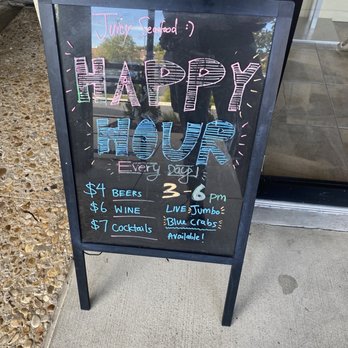 Juicy Seafood :)
HAPPY
HOUR
Every Day!
$4 BEERS
$6 WINE
$7 Cocktails
3-6 pm
LIVE Jumbo
Blue Crabs
Available!